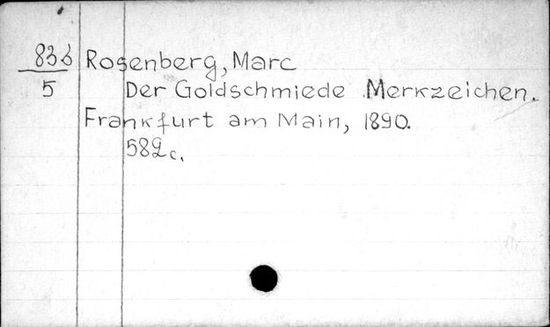 836 Rosenberg, Marc
5 Der Goldschmiede Merkzeichen.
Frankfurt am Main, 1890.
582c.